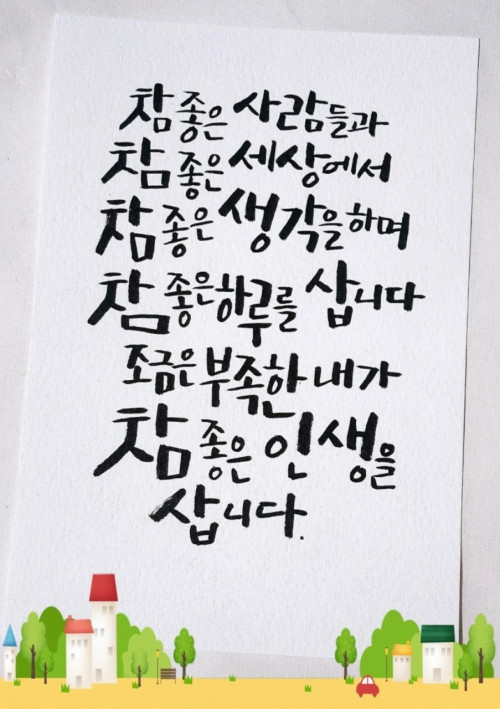 참 좋은 사람들과
참 좋은 세상에서
참 좋은 생각을 하며
참 좋은 하루를 삽니다
조금은 부족한 내가
참 좋은 인생을
삽니다.